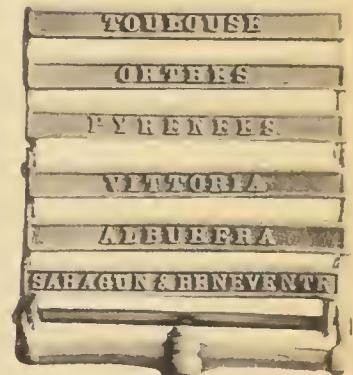 TOULOUSE
ORTHES
PYRENEES
VITTORIA
ALBUHERA
SAHAGUN & BENEVENTE